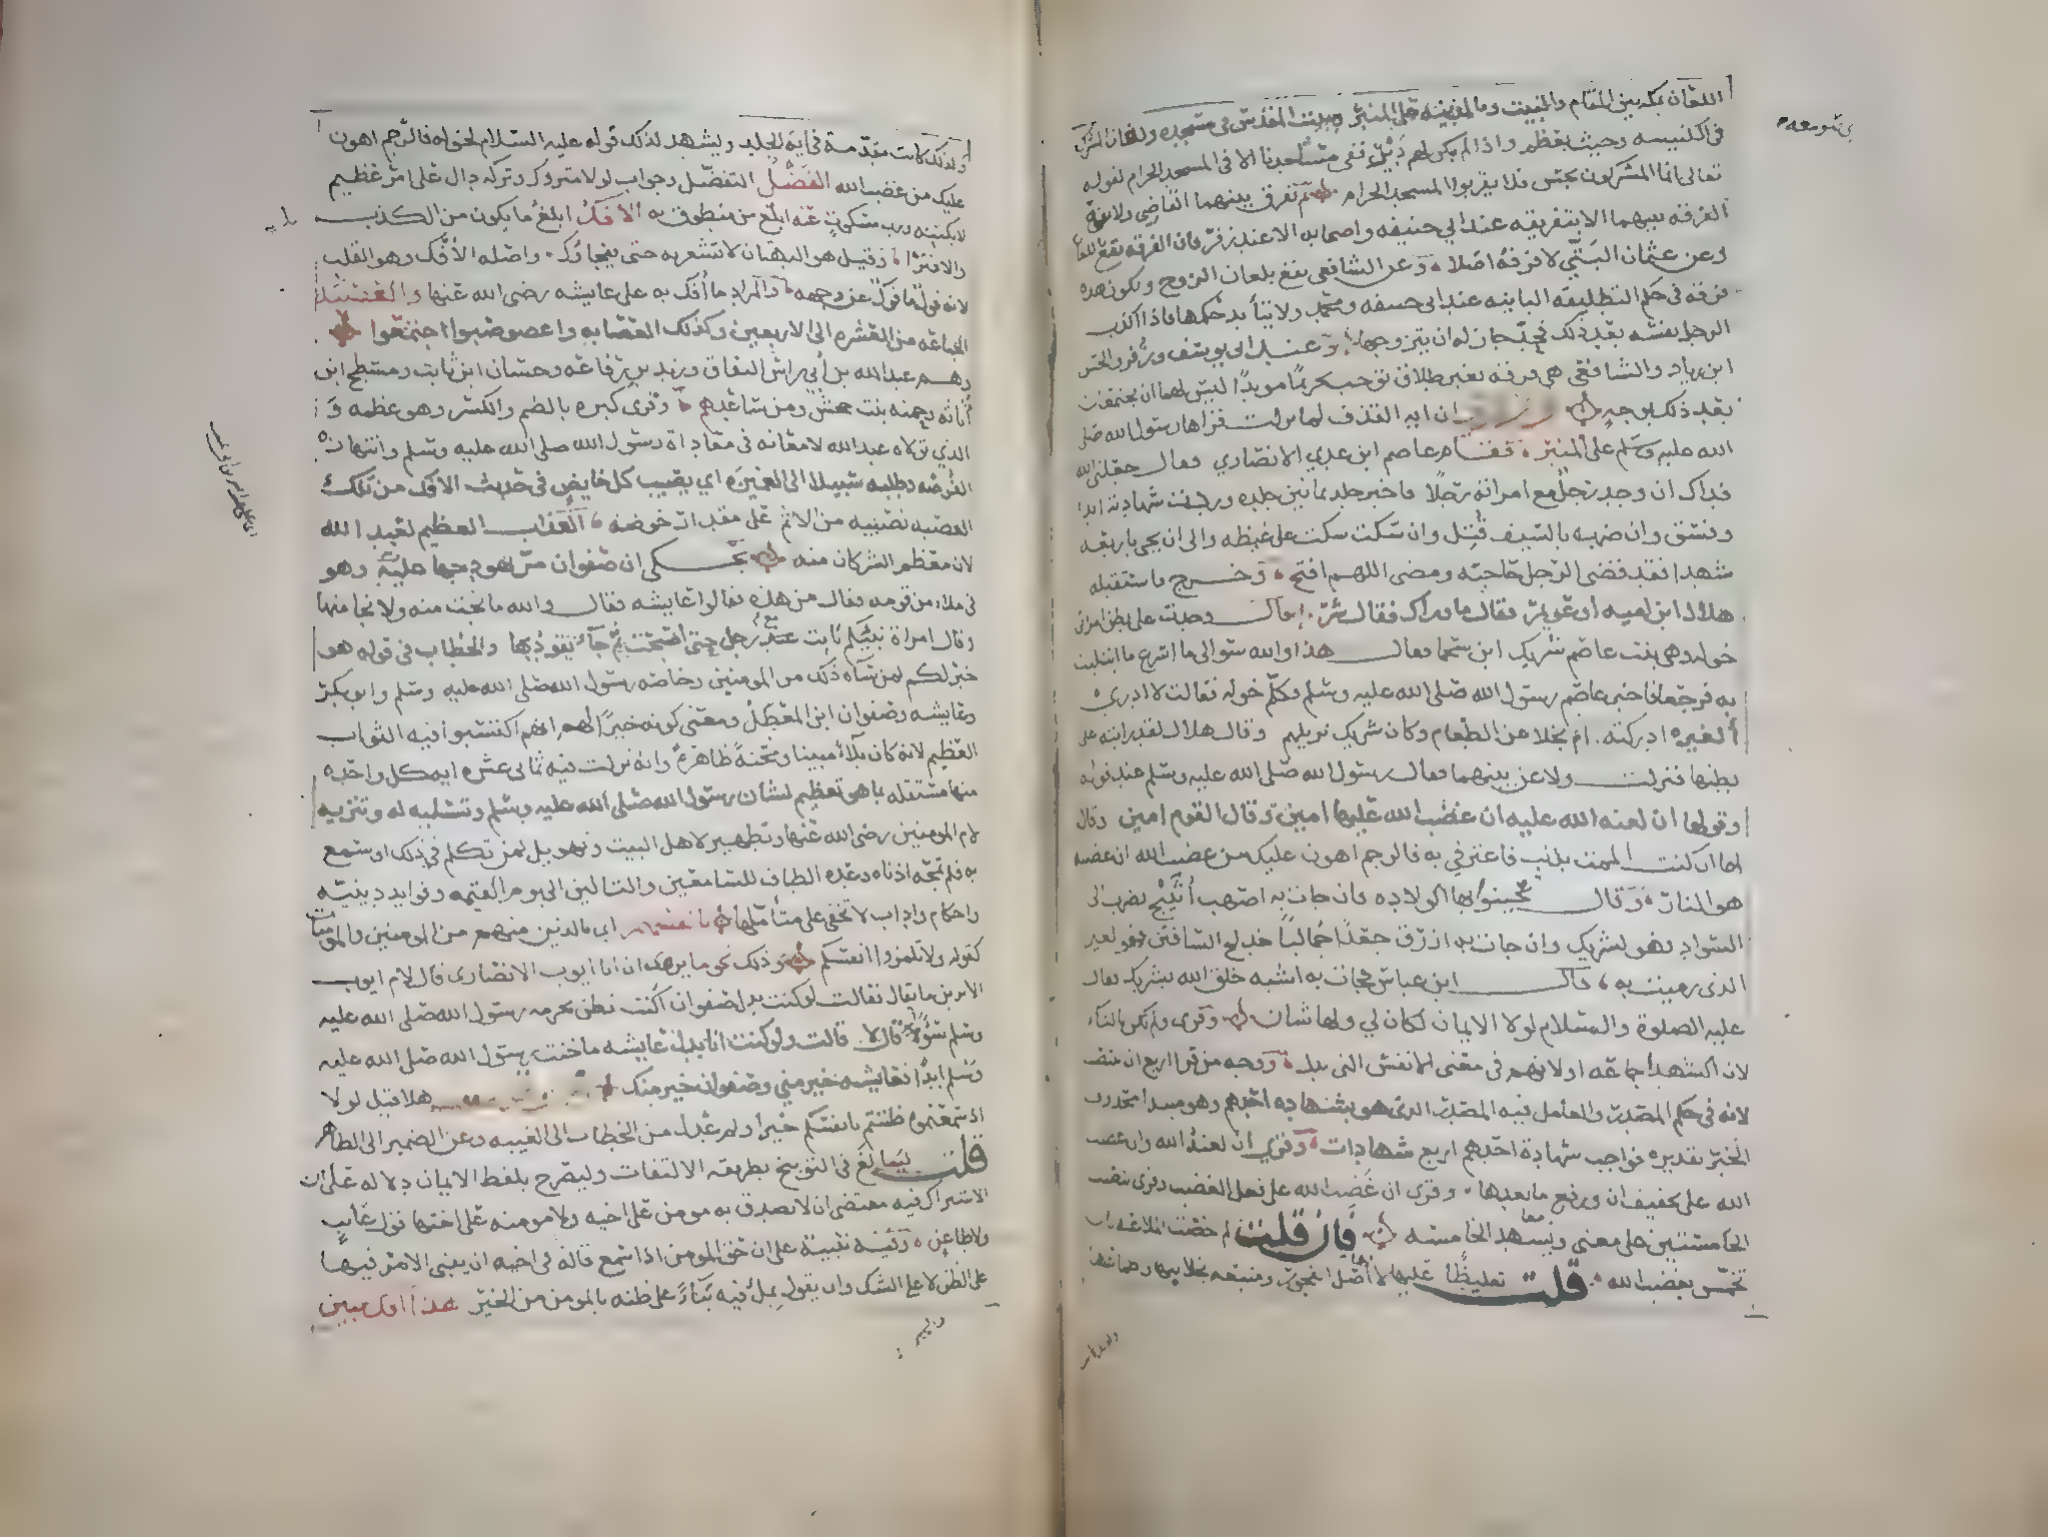 اللعان بمكة بين المقام والبيت وبالمدينة على المنبر وبيت المقدس في مسجده ولعان المشرك
في الكنيسة وحيث يعظم واذا لم يكن لهم دين ففي مساجدنا الا في المسجد الحرام لقوله
تعالى انما المشركون نجس فلا يقربوا المسجد الحرام ثم يفرق بينهما القاضي ولا تقع
الفرقة بينهما الا بتفريقه عند ابي حنيفه واصحابه الا عند زفر فان الفرقه تقع باللعان
وعن عثمان البتي لا فرقة اصلا وعن الشافعي تقع بلعان الزوج وتكون هذه
فرقه في حكم التطليقه الباينه عند ابي حنيفه ومحمد ولا يتأبد حكمها فاذا اكذب
الرجل نفسه بعد ذلك فحد جاز له ان يتزوجها وعند ابي يوسف وزفر والحسن
ابن زياد والشافعي هي فرقه بغير طلاق توجب تحريما مؤبدا ليس لهما ان يجتمعا
بعد ذلك بوجه ان اية القذف لما نزلت قراها رسول الله صلى
الله عليه وسلم على المنبر فقام عاصم ابن عدي الانصاري فقال جعلني الله
فداك ان وجد رجل مع امراته رجلا فاخبر جلد ثمانين جلده وردت شهادته ابدا
وفسق وان ضربه بالسيف قتل وان سكت سكت على غيظه والى ان يجي باربعه
شهدا فقد قضى الرجل حاجته ومضى اللهم افتح وخرج فاستقبله
هلال ابن اميه او عويمر فقال ما وراك فقال شر وجدت على بطن امراتي
خوله وهي بنت عاصم شريك ابن سحما فقال هذا والله سؤالي ما اسرع ما ابتليت
به فرجعا فاخبر عاصم رسول الله صلى الله عليه وسلم وكلم خوله فقالت لا ادري
ألغيره ادركته ام بخلا عن الطعام وكان شريك نزيلهم وقال هلال لقد رايته على
بطنها فنزلت ولاعن بينهما فقال رسول الله صلى الله عليه وسلم عند قوله
وقولها ان لعنه الله عليه ان غضب الله عليها امين وقال القوم امين وقال
لها ان كنت الممت بذنب فاعترفي به فالرجم اهون عليك من غضب الله ان غضبه
هو النار وقال تحينوا بها الولاده فان جات به اصهب أثيبج يضرب الى
السواد فهو لشريك وان جات به اورق جعدا جماليا خدلج الساقين فهو لغير
الذي رميت به قال ابن عباس فجات به اشبه خلق الله بشريك فقال
عليه الصلوة والسلام لولا الايمان لكان لي ولها شان وقرى ولم تكن بالتاء
لان الشهدا جماعه او لانهم في معنى الانفس التي بدل ووجه من قرا اربع ان ينصب
لانه في حكم المصدر والعامل فيه المصدر الذي هو شهاده احدهم وهو مبتدا محذوف
الخبر تقديره فواجب شهادة احدهم اربع شهادات وقرى ان لعنة الله وان غضب
الله على تخفيف ان ورفع ما بعدها وقرى ان غضب الله على فعل الغضب وقرى بنصب
الخامستين على معنى ويشهد الخامسه فان قلت لم خصت الملاعنه بان
تخمس بغضب الله قلت تغليظا عليها لانها اصل الفجور ومنبعه بخلابتها واطماعها
ولذلك كانت مقدمة في اية الجلد ويشهد لذلك قوله عليه السلام لخوله فالرجم اهون
عليك من غضب الله الفضل التفضل وجواب لولا متروك وتركه دال على امر عظيم
لا يكتنه ورب مسكوت عنه ابلغ من منطوق به الافك ابلغ ما يكون من الكذب
والافترا وقيل هو البهتان لا تشعر به حتى يفجأك واصله الأفك وهو القلب
لانه قول مأفوك عن وجهه والمراد ما أفك به على عايشه رضي الله عنها والعصبة
الجماعه من العشره الى الاربعين وكذلك العصابه واعصوصبوا اجتمعوا
وهم عبدالله بن أبي راس النفاق وزيد بن رفاعه وحسان ابن ثابت ومسطح ابن
أثاثه وحمنه بنت جحش ومن ساعدهم وقرى كبره بالضم والكسر وهو عظمه و
الذي تولاه عبدالله لامعانه في معاداة رسول الله صلى الله عليه وسلم وانتهازه
الفرصه وطلبه سبيلا الى الغميزة اي يصيب كل خايض في حديث الافك من تلك
العصبه نصيبه من الاثم على مقدار خوضه والعذاب العظيم لعبد الله
لان معظم الشر كان منه يحكى ان صفوان مر بهودجها عليه وهو
في ملاء من قومه فقال من هذه فقالوا عايشه فقال والله ما نجت منه ولا نجا منها
وقال امراة نبيكم باتت مع رجل حتى اصبحت ثم جآء يقودها والخطاب في قوله هو
خير لكم لمن سآه ذلك من المومنين وخاصه رسول الله صلى الله عليه وسلم وابو بكر
وعايشه وصفوان ابن المعطل ومعنى كونه خيرا لهم انهم اكتسبوا فيه الثواب
العظيم لانه كان بلآء مبينا ومحنة ظاهرة وانه نزلت فيه ثماني عشره ايه كل واحده
منها مستقله بما هو تعظيم لشان رسول الله صلى الله عليه وسلم وتسليه له وتنزيه
لام المومنين رضي الله عنها وتطهير لاهل البيت وتهويل لمن تكلم في ذلك او سمع
به فلم تمجه اذناه وعده الطاف للسامعين والتالين الى يوم القيمه وفوايد دينيه
واحكام واداب لا تخفى على متأملها بانفسهم اي بالذين منهم من المومنين والمومنات
كقوله ولا تلمزوا انفسكم وذلك نحو ما يروى ان ابا ايوب الانصارى قال لام ايوب
الا ترين ما يقال فقالت لو كنت بدل صفوان اكنت تظن بحرمه رسول الله صلى الله عليه
وسلم سؤا قال لا قالت ولو كنت انا بدل عايشه ما خنت رسول الله صلى الله عليه
وسلم ابدا فعايشه خير مني وصفوان خير منك هلا قيل لولا
اذ سمعتموه ظننتم بانفسكم خيرا ولم عدل من الخطاب الى الغيبه وعن الضمير الى الظاهر
قلت ليبالغ في التوبيخ بطريقه الالتفات وليصرح بلفظ الايمان دلاله على ان
الاشتراك فيه مقتضى ان لا يصدق به مومن على اخيه ولا مومنه على اختها قول غايب
ولا طاعن وفيه تنبيه على ان حق المومن اذا سمع قاله في اخيه ان يبني الامر فيها
على الظن لا على الشك وان يقول بملء فيه بناءً على ظنه بالمومن من الخير هذا افك مبين